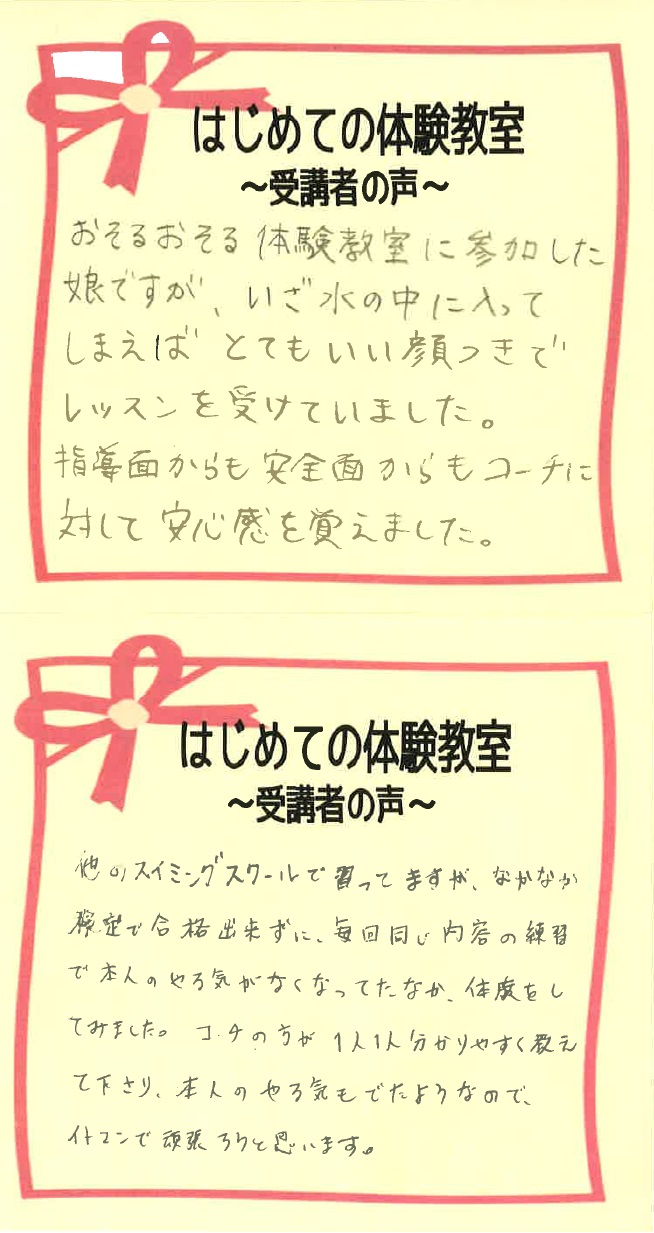 はじめての体験教室
～受講者の声～
おそるおそる体験教室に参加した
娘ですが、いざ水の中に入って
しまえばとてもいい顔つきで
レッスンを受けていました。
指導面からも安全面からもコーチに
対して安心感を覚えました。
はじめての体験教室
～受講者の声～
他のスイミングスクールで習ってますが、なかなか
検定で合格出来ずに、毎回同じ内容の練習
で本人のやる気がなくなってたなか、体験をし
てみました。コーチの方が1人1人分かりやすく教え
て下さり、本人のやる気もでたようなので、
イトマンで頑張ろうと思います。